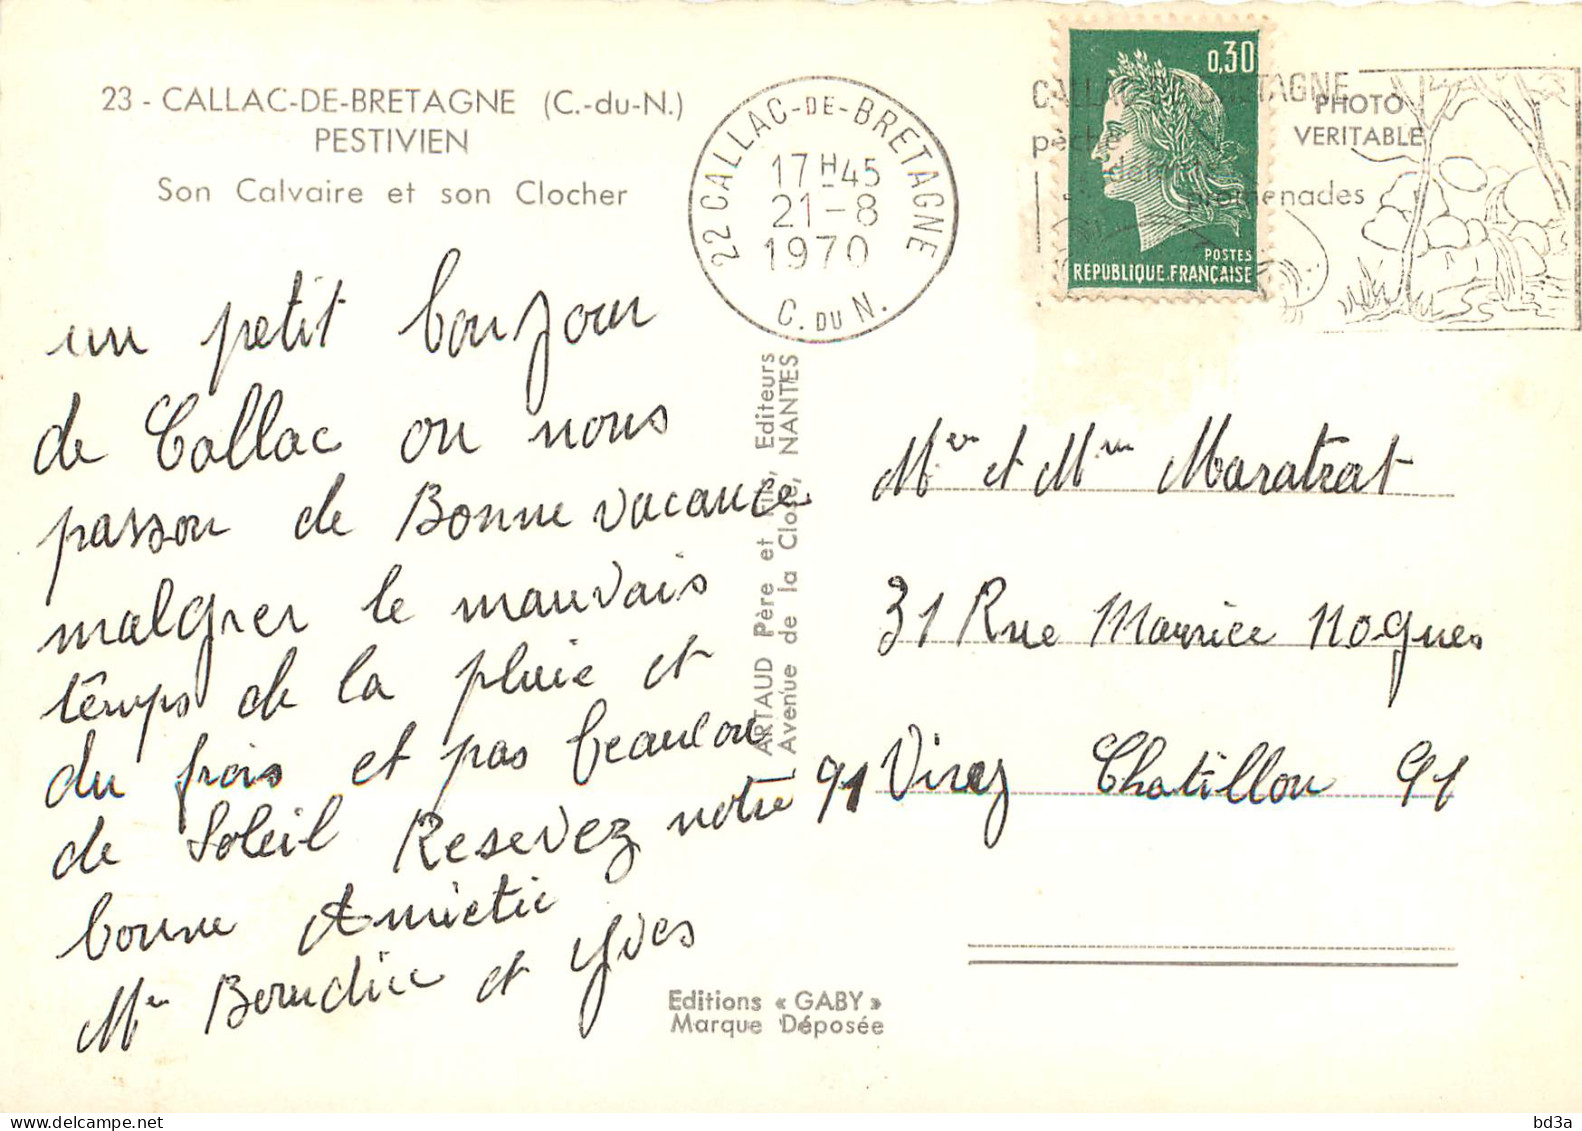 23 - CALLAC-DE-BRETAGNE (C.-du-N.)
PESTIVIEN
Son Calvaire et son Clocher
22 CALLAC-DE-BRETAGNE
17 H 45
21-8
1970
C. DU N.
0,30
POSTES
REPUBLIQUE.FRANÇAISE
PHOTO
VERITABLE
pêche
promenades
un petit bonjour
de Callac ou nous
passon de Bonne vacance
malgrer le mauvais
temps de la pluie et
du frois et pas beaucou
de Soleil Resevez notre
bonne Amietie
et Yves
ARTAUD Père et Fils, Editeurs
Avenue de la Close, NANTES
Mer et Mm Maratrat
31 Rue Maurice Nogues
91 Virey Chatillon 91
Editions « GABY »
Marque Déposée
bd3a